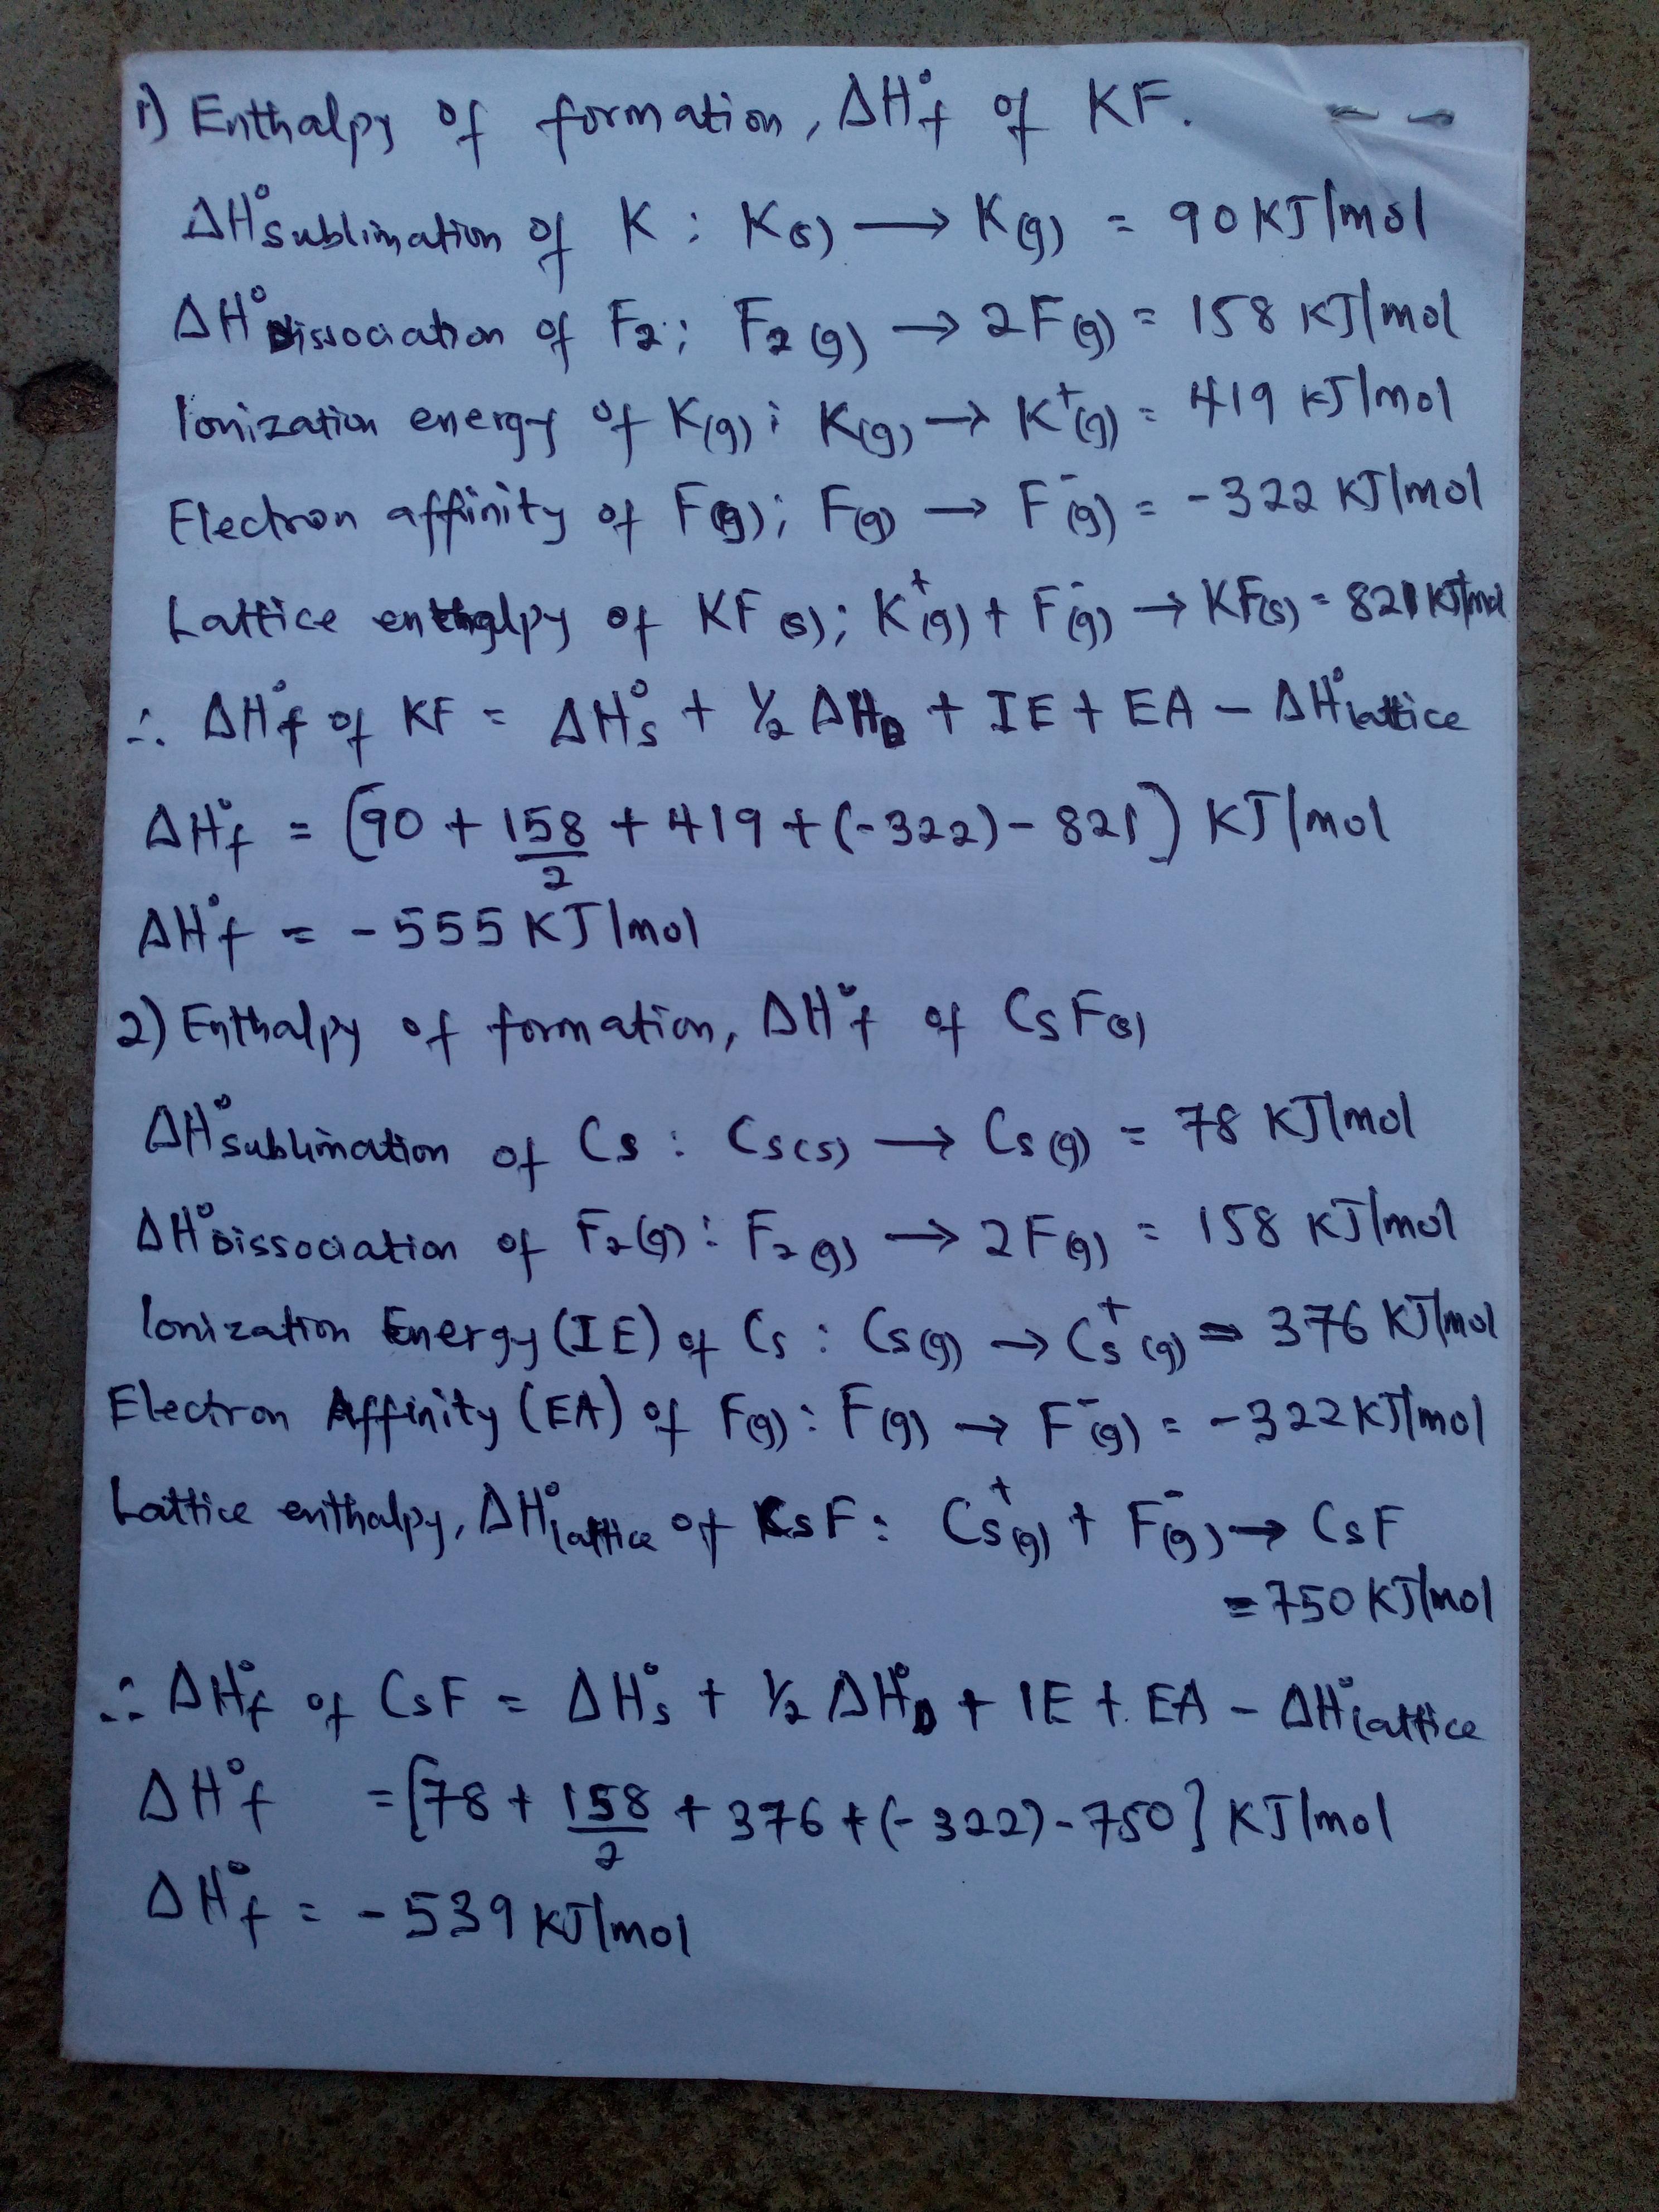 1) Enthalpy of formation, ΔH°f of KF.
ΔH°sublimation of K : K(s) → K(g) = 90 KJ/mol
ΔH°Dissociation of F2 ; F2(g) → 2F(g) = 158 KJ/mol
Ionization energy of K(g) ; K(g) → K⁺(g) = 419 KJ/mol
Electron affinity of F(g) ; F(g) → F⁻(g) = -322 KJ/mol
Lattice enthalpy of KF(s) ; K⁺(g) + F⁻(g) → KF(s) = 821 KJ/mol
∴ ΔH°f of KF = ΔH°s + ½ ΔHD + IE + EA - ΔH°lattice
ΔH°f = [90 + 158/2 + 419 + (-322) - 821] KJ/mol
ΔH°f = -555 KJ/mol
2) Enthalpy of formation, ΔH°f of CsF(s)
ΔH°sublimation of Cs : Cs(s) → Cs(g) = 78 KJ/mol
ΔH°Dissociation of F2(g) : F2(g) → 2F(g) = 158 KJ/mol
Ionization Energy (IE) of Cs : Cs(g) → Cs⁺(g) = 376 KJ/mol
Electron Affinity (EA) of F(g) : F(g) → F⁻(g) = -322 KJ/mol
Lattice enthalpy, ΔH°lattice of CsF : Cs⁺(g) + F⁻(g) → CsF
= 750 KJ/mol
∴ ΔH°f of CsF = ΔH°s + ½ ΔH°D + IE + EA - ΔH°lattice
ΔH°f = [78 + 158/2 + 376 + (-322) - 750] KJ/mol
ΔH°f = -539 KJ/mol